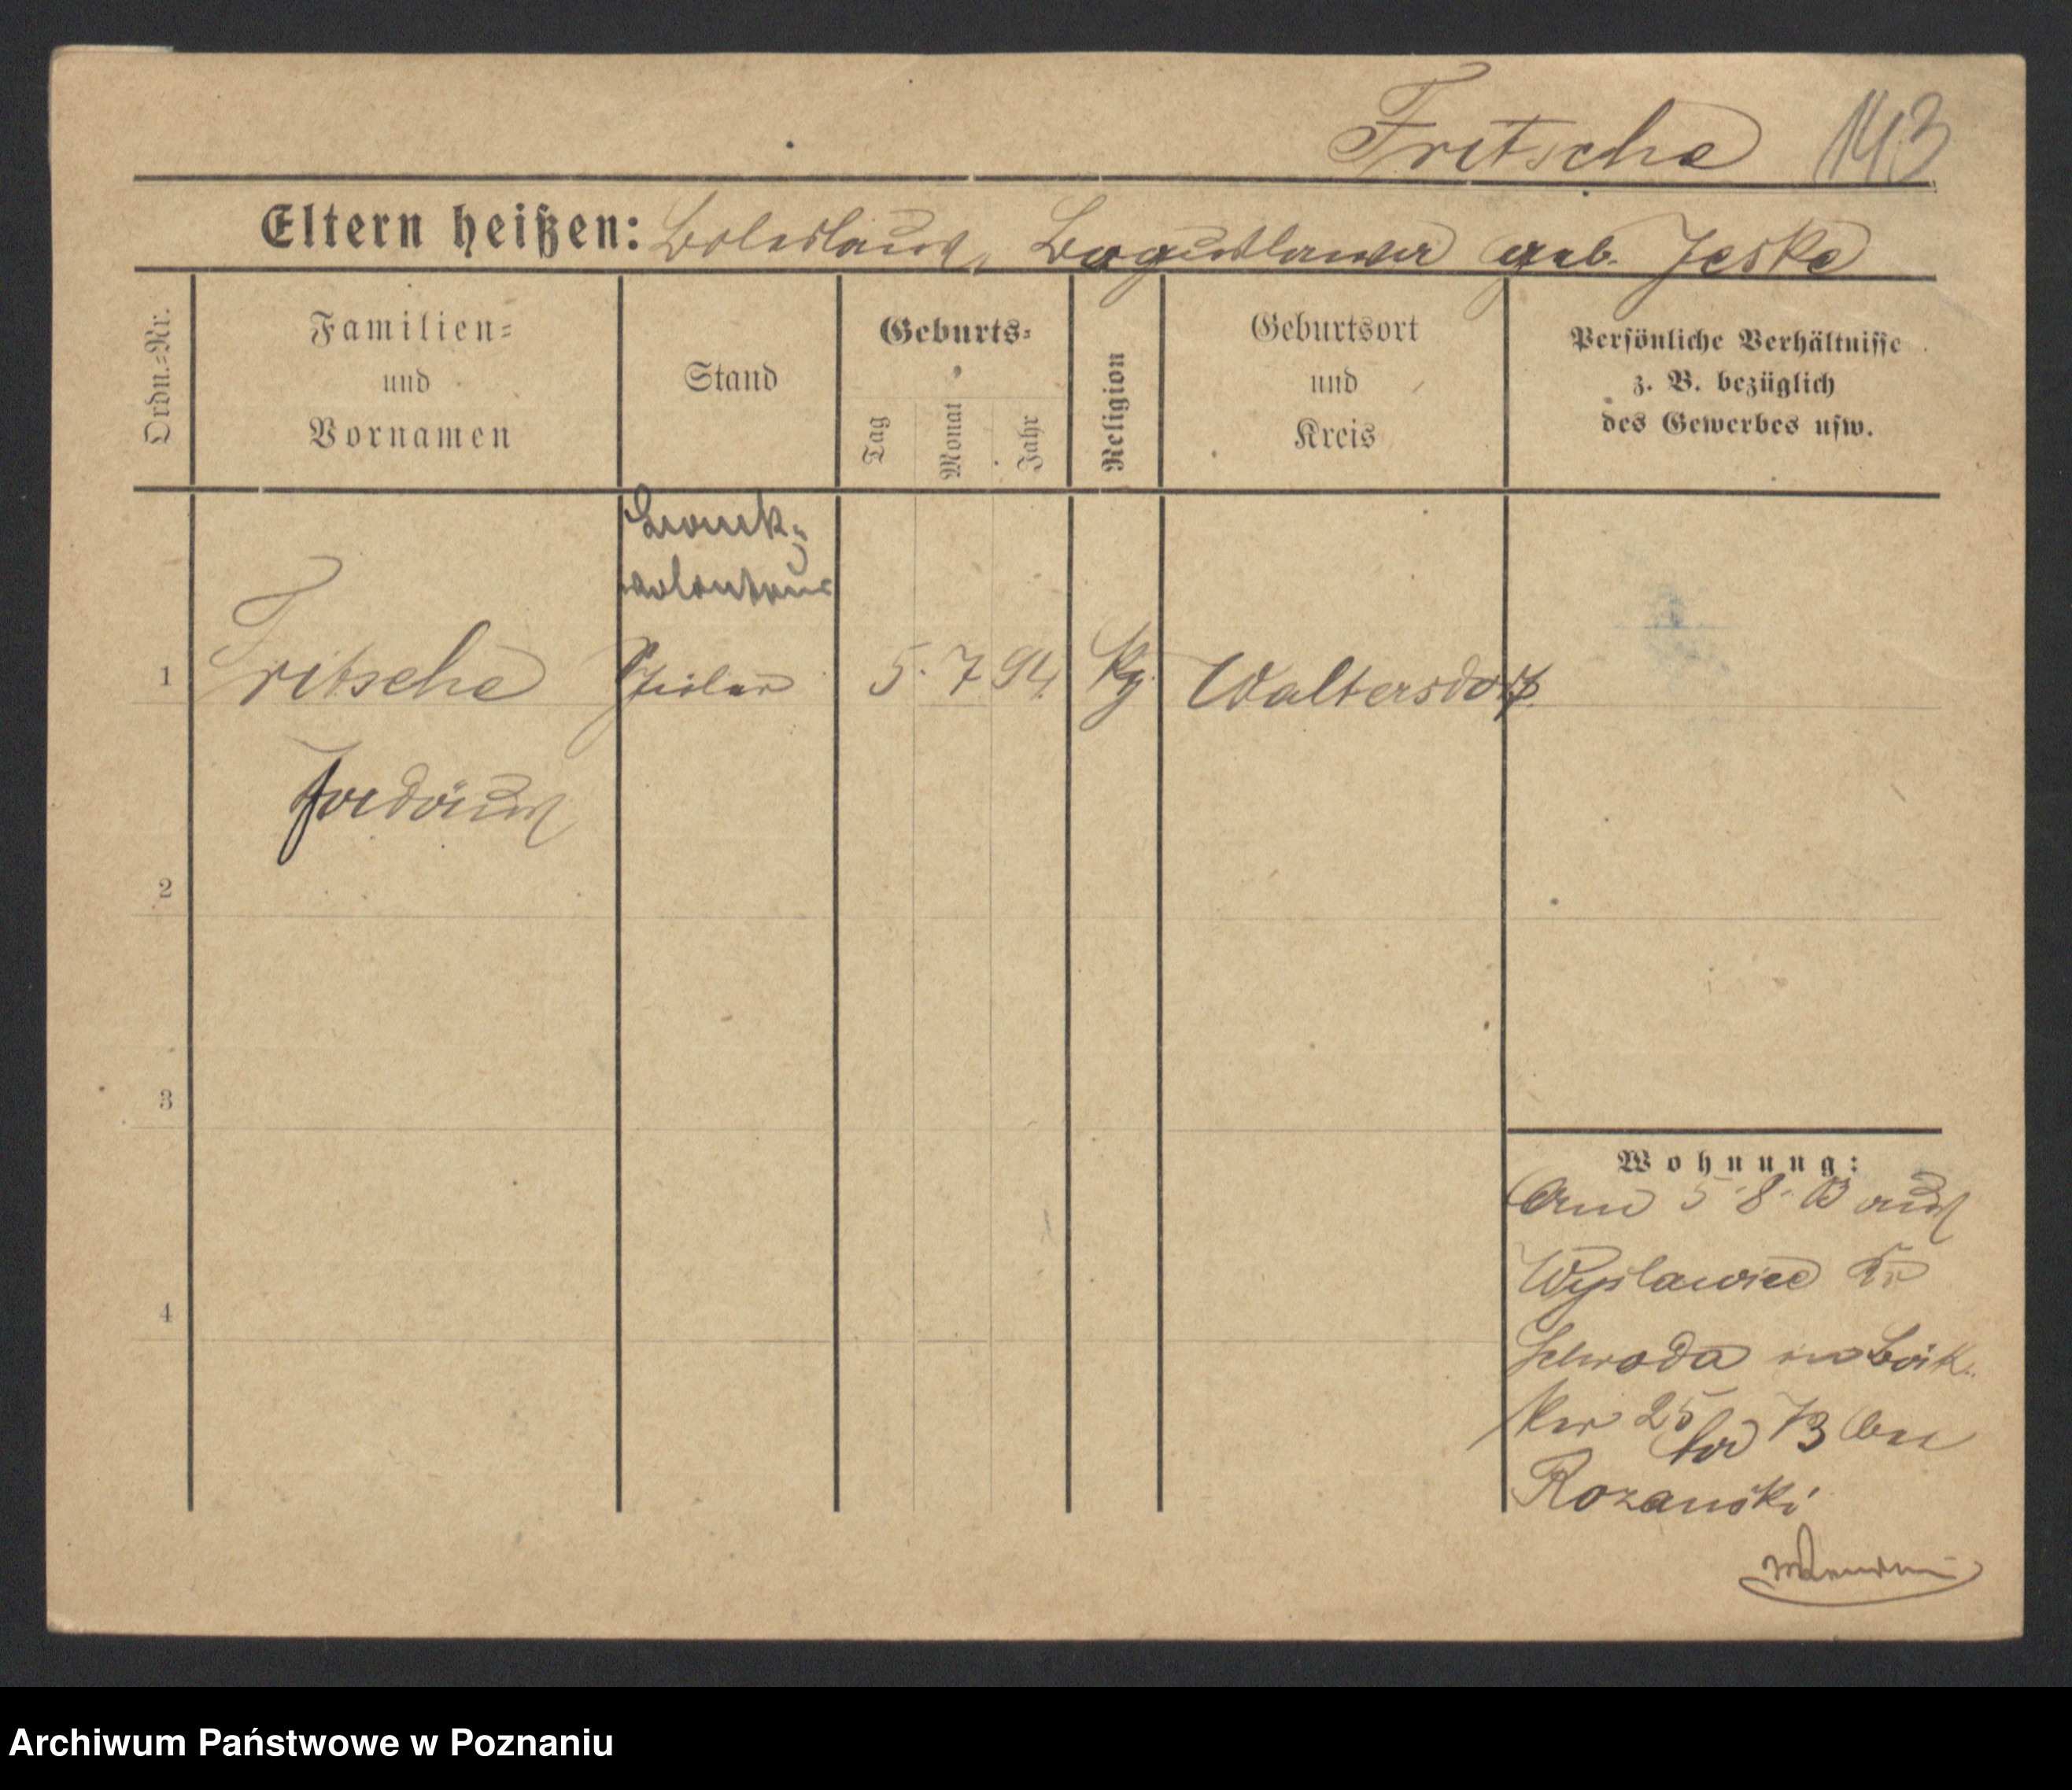 Fritsche 143
Eltern heißen: Boleslaus, Boguslawa geb. Jeske
Ordn.-Nr.
Familien-
und
Vornamen
Stand
Geburts-
Tag
Monat
Jahr
Religion
Geburtsort
und
Kreis
Persönliche Verhältnisse
z. B. bezüglich
des Gewerbes usw.
Bank-
1 Fritsche Schüler 5. 7 94 kg. Waltersdorf
2
3
4
Wohnung:
Am 5. 8. 13 aus
Wyslawice Kr
Schroda
25 13 bei
Rozanski
Archiwum Państwowe w Poznaniu